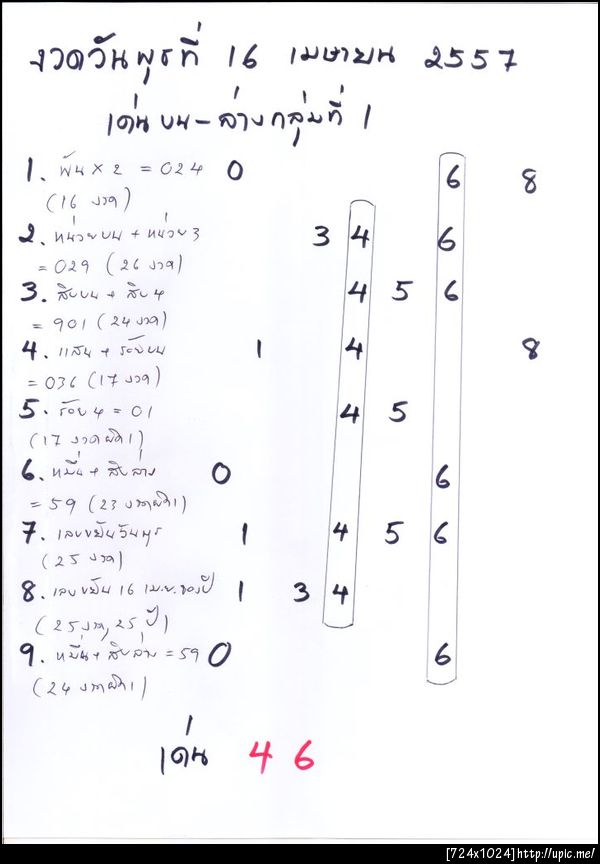 งวดวันพุธที่ 16 เมษายน 2557
เด่นบน-ล่างกลุ่มที่ 1
1. พัน x 2 = 024 0 6 8
(16 งวด)
2. หน่วยบน + หน่วย 3 3 4 6
= 029 (26 งวด)
3. สิบบน + สิบ 4 4 5 6
= 901 (24 งวด)
4. แสน + ร้อยบน 1 4 8
= 036 (17 งวด)
5. ร้อย 4 = 01 4 5
(17 งวดผิด 1)
6. หมื่น + สิบล่าง 0 6
= 59 (23 งวดผิด 1)
7. เลขขยันวันพุธ 1 4 5 6
(25 งวด)
8. เลขขยัน 16 เม.ย. ของปี 1 3 4
(25 งวด, 25 ปี)
9. หมื่น + สิบล่าง = 59 0 6
(24 งวดผิด 1)
เด่น 4 6
[724x1024]http://upic.me/